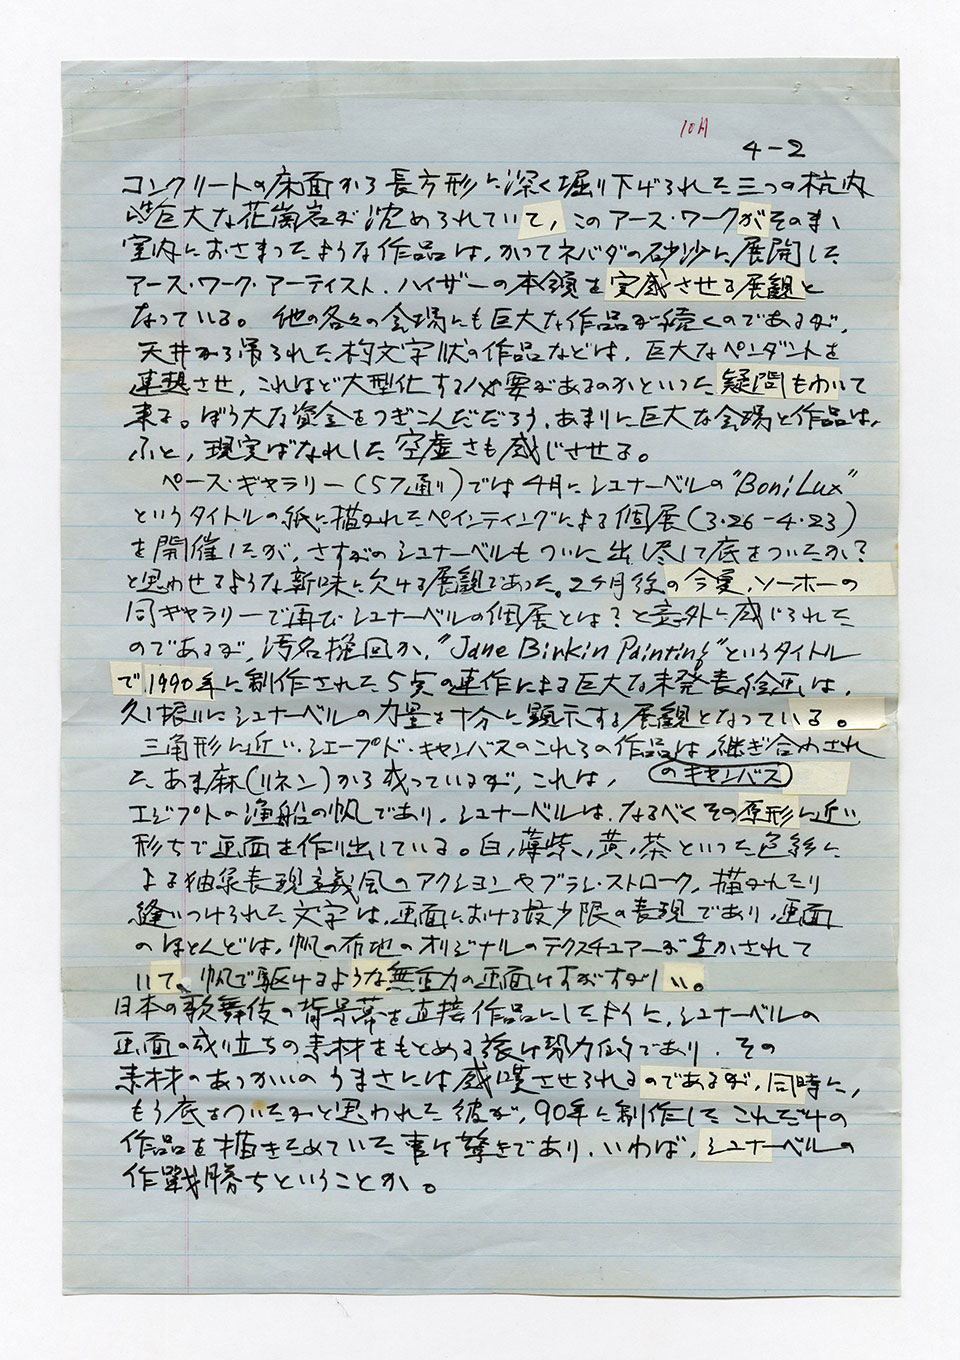 10月
4-2
コンクリートの床面から長方形に深く堀り下げられた三つの杭内
には巨大な花崗岩が沈められていて,このアース・ワークがそのまゝ
室内におさまったような作品は,かつてネバダの砂沙に展開した
アース・ワーク・アーティスト,ハイザーの本領を実感させる展観と
なっている。他の各々の会場にも巨大な作品が続くのであるが,
天井から吊られた,杓文字状の作品などは,巨大なペンダントを
連想させ,これほど大型化する必要があるのかといった疑問もわいて
来る。ぼう大な資金をつぎこんだだろう,あまりに巨大な会場と作品は,
ふと,現実ばなれした空虚さも感じさせる。
ペース・ギャラリー(57通り)では4月にシュナーベルの"Boni Lux"
というタイトルの紙に描かれたペインティングによる個展(3・26-4・23)
を開催したが,さすがのシュナーベルもついに出し尽して底をついたか?
と思わせるような新味に欠ける展観であった。2ヶ月後の今夏,ソーホーの
同ギャラリーで再びシュナーベルの個展とは?と意外に感じられた
のであるが,汚名挽回か,"Jane Birkin Painting"というタイトル
で,1990年に制作された5点の連作による巨大な未発表の絵画は,
久し振りにシュナーベルの力量を十分に顕示する展観となっている。
三角形に近い,シェープド・キャンバスのこれらの作品は,継ぎ合わされ
た,あま麻(リネン)から成っているが,これは,
のキャンバス
エジプトの漁船の帆であり,シュナーベルは,なるべくその原形に近い
形ちで画面を作り出している。白,薄紫,黄,茶といった色彩に
よる抽象表現主義風のアクションやブラシ・ストローク,描かれたり
縫いつけられた文字は,画面における最少限の表現であり,画面
のほとんどは,帆の布地のオリジナルのテクスチュアーが生かされて
いて,帆で駆けるような無重力の画面はすがすがしい。
日本の歌舞伎の背景幕を直接作品にしたように,シュナーベルの
画面の成り立ちの素材をもとめる旅は勢力的であり,その
素材のあつかいのうまさには感嘆させられるのであるが,同時に,
もう底をついたかと思われた彼が,90年に制作したこれだけの
作品を描きためていた事は驚きであり,いわば,シュナーベルの
作戦勝ちということか。